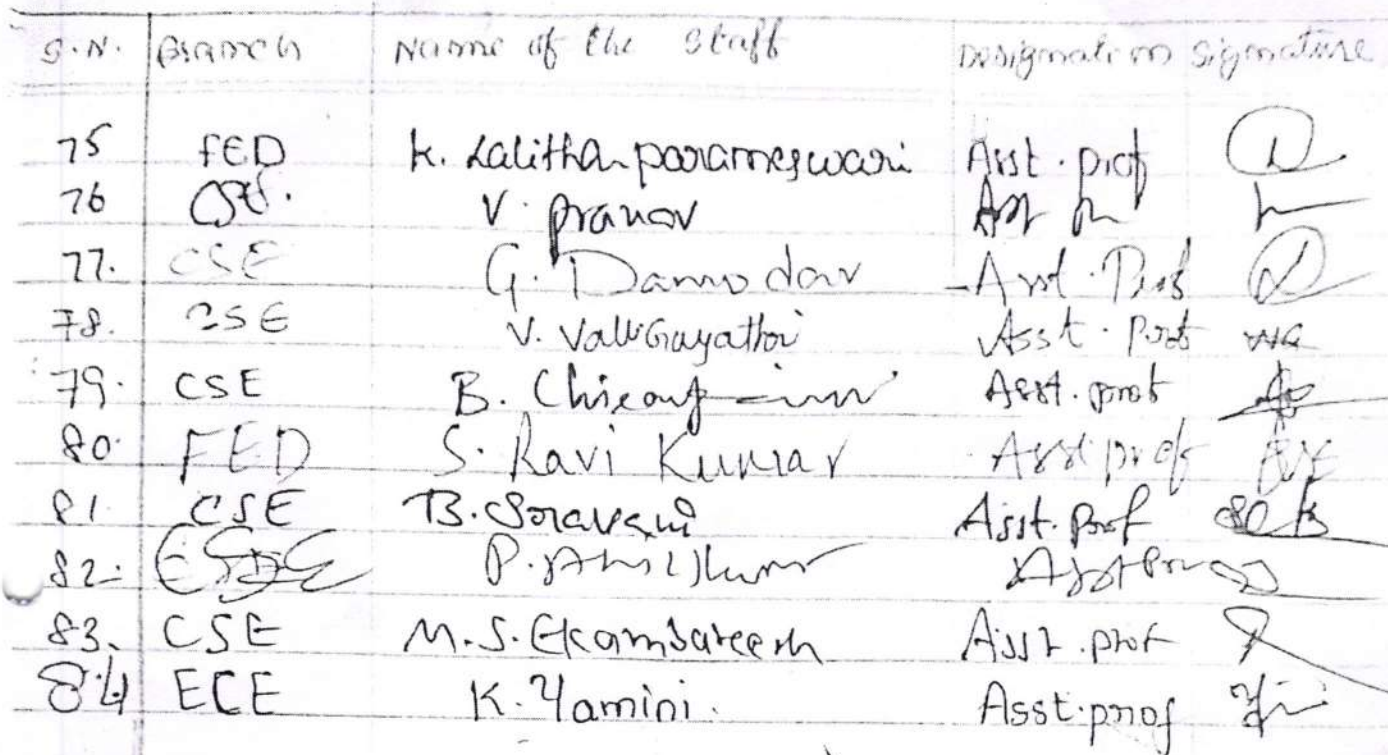 S.N. Branch Name of the Staff Designation Signature
75 FED K. Lalitha parameswari Asst. prof
76 CSE. V. Pranav Asst
77. CSE G. Damodar Asst. Prof
78. CSE V. Valli Gayathri Asst. Prof VVG
79. CSE B. Asst. prof
80. FED S. Ravi Kumar Asst prof
81. CSE B. Sravani Asst. Prof
82. P. Anil Kumar Asst Prof
83. CSE M.S. Ekambareesh Asst. prof
84 ECE K. Yamini. Asst. prof